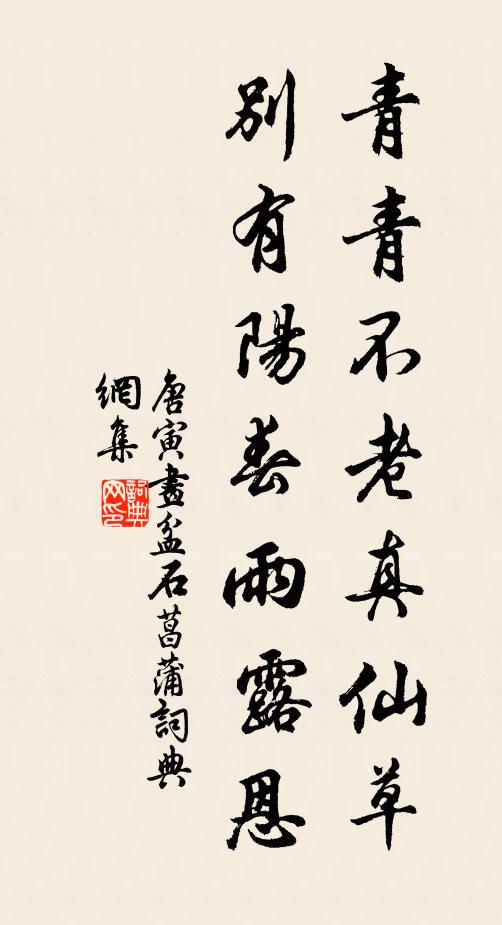 青青不老真仙草
別有陽春雨露恩
唐寅畫盆石菖蒲詞典
網集
詞典
网印